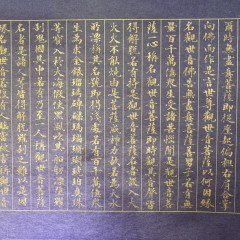 爾時無盡意菩薩即從座起偏袒右肩合掌
向佛而作是言世尊觀世音菩薩以何因緣
名觀世音佛告無盡意菩薩善男子若有無
量百千萬億眾生受諸苦惱聞是觀世音菩
薩一心稱名觀世音菩薩即時觀其音聲皆
得解脫若有持是觀世音菩薩名者設入大
火火不能燒由是菩薩威神力故若為大水
所漂稱其名號即得淺處若有百千萬億眾
生為求金銀琉璃硨磲瑪瑙珊瑚琥珀真珠
等寶入於大海假使黑風吹其船舫飄墮羅
剎鬼國其中若有乃至一人稱觀世音菩薩
名者是諸人等皆得解脫羅剎之難以是因
緣名觀世音若復有人臨當被害稱觀世音